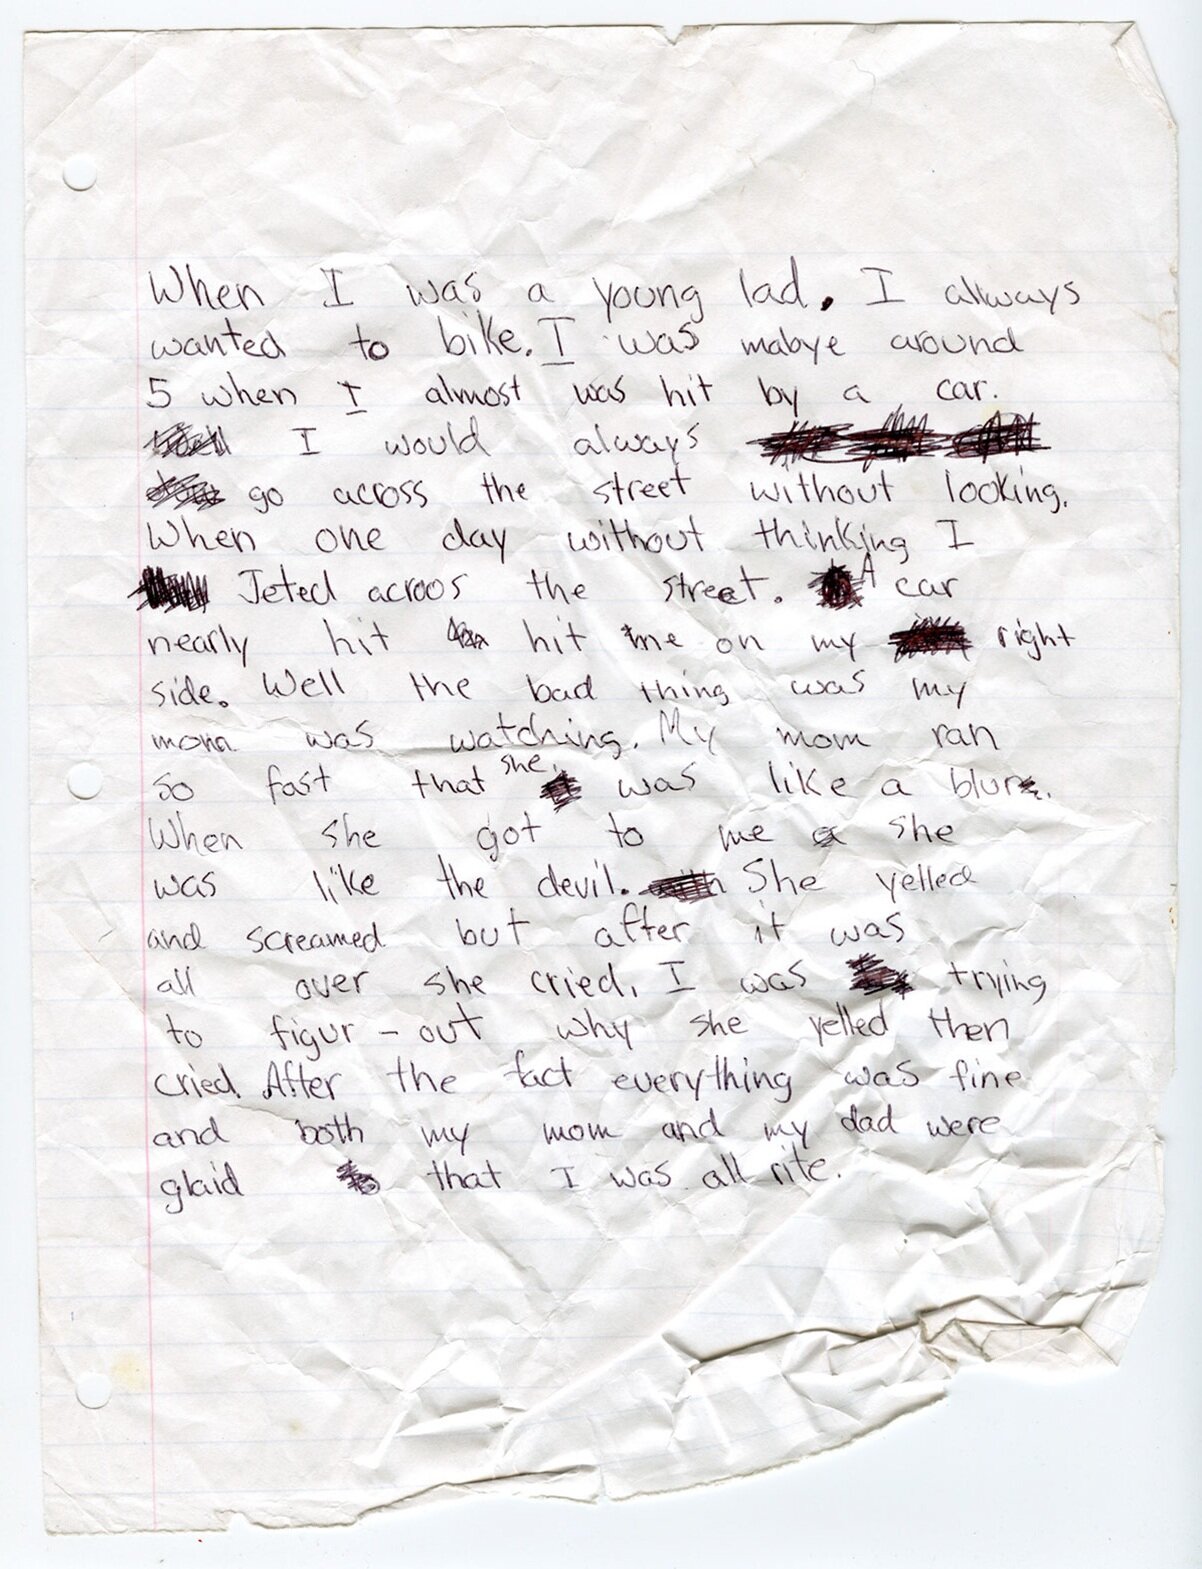 When I was a young lad, I allways
wanted to bike. I was mabye around
5 when I almost was hit by a car.
I would always
go across the street without looking.
When one day without thinking I
Jeted acroos the street. A car
nearly hit hit me on my right
side. Well the bad thing was my
mom was watching. My mom ran
so fast that she was like a blur.
When she got to me she
was like the devil. She yelled
and screamed but after it was
all over she cried. I was trying
to figur-out why she yelled then
cried. After the fact everything was fine
and both my mom and my dad were
glaid that I was all rite.